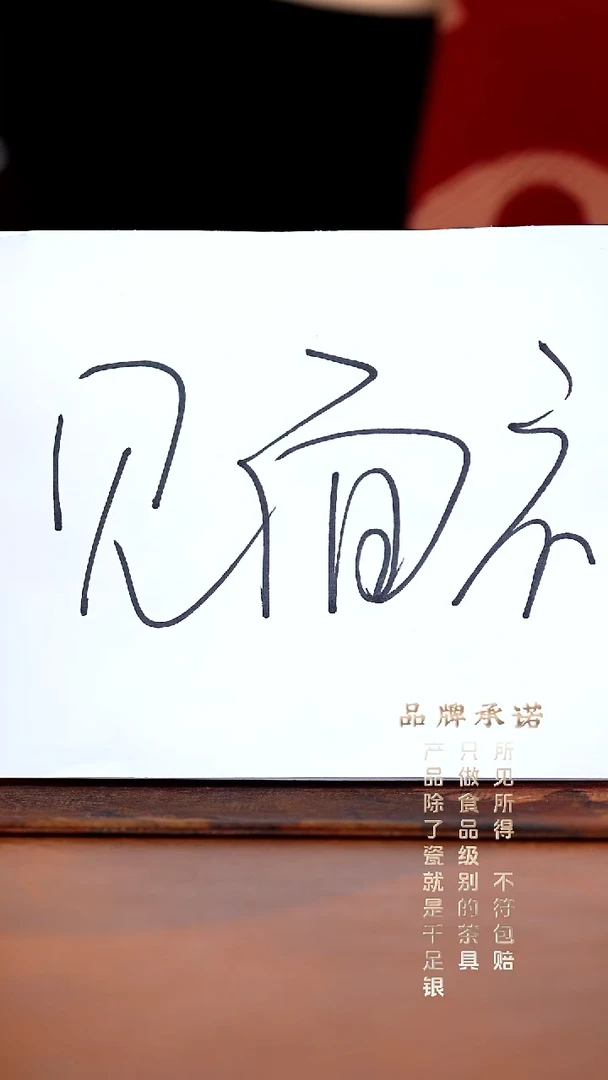 见
品牌承诺
所见所得 不符包赔
只做食品级别的茶具
产品除了瓷就是千足银